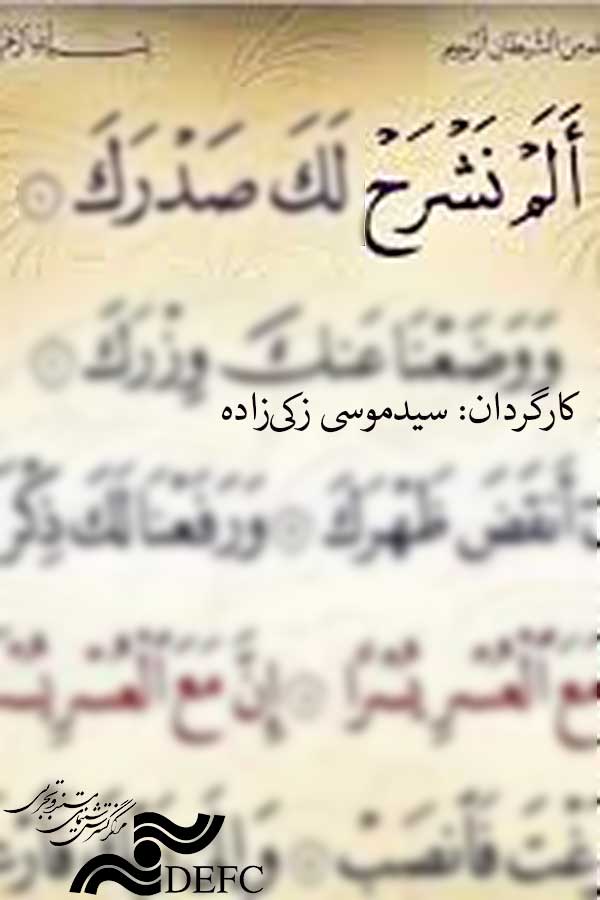 أَلَمْ نَشْرَحْ لَكَ صَدْرَكَ
وَوَضَعْنَا عَنكَ وِزْرَكَ
کارگردان: سیدموسی زکی‌زاده
أَنقَضَ ظَهْرَكَ وَرَفَعْنَا لَكَ ذِكْرَ
مَعَ الْعُسْرِ يُسْرًا إِنَّ مَعَ الْعُسْرِ يُسْ
فَانصَبْ
مرکز گسترش سینمای مستند و تجربی
DEFC